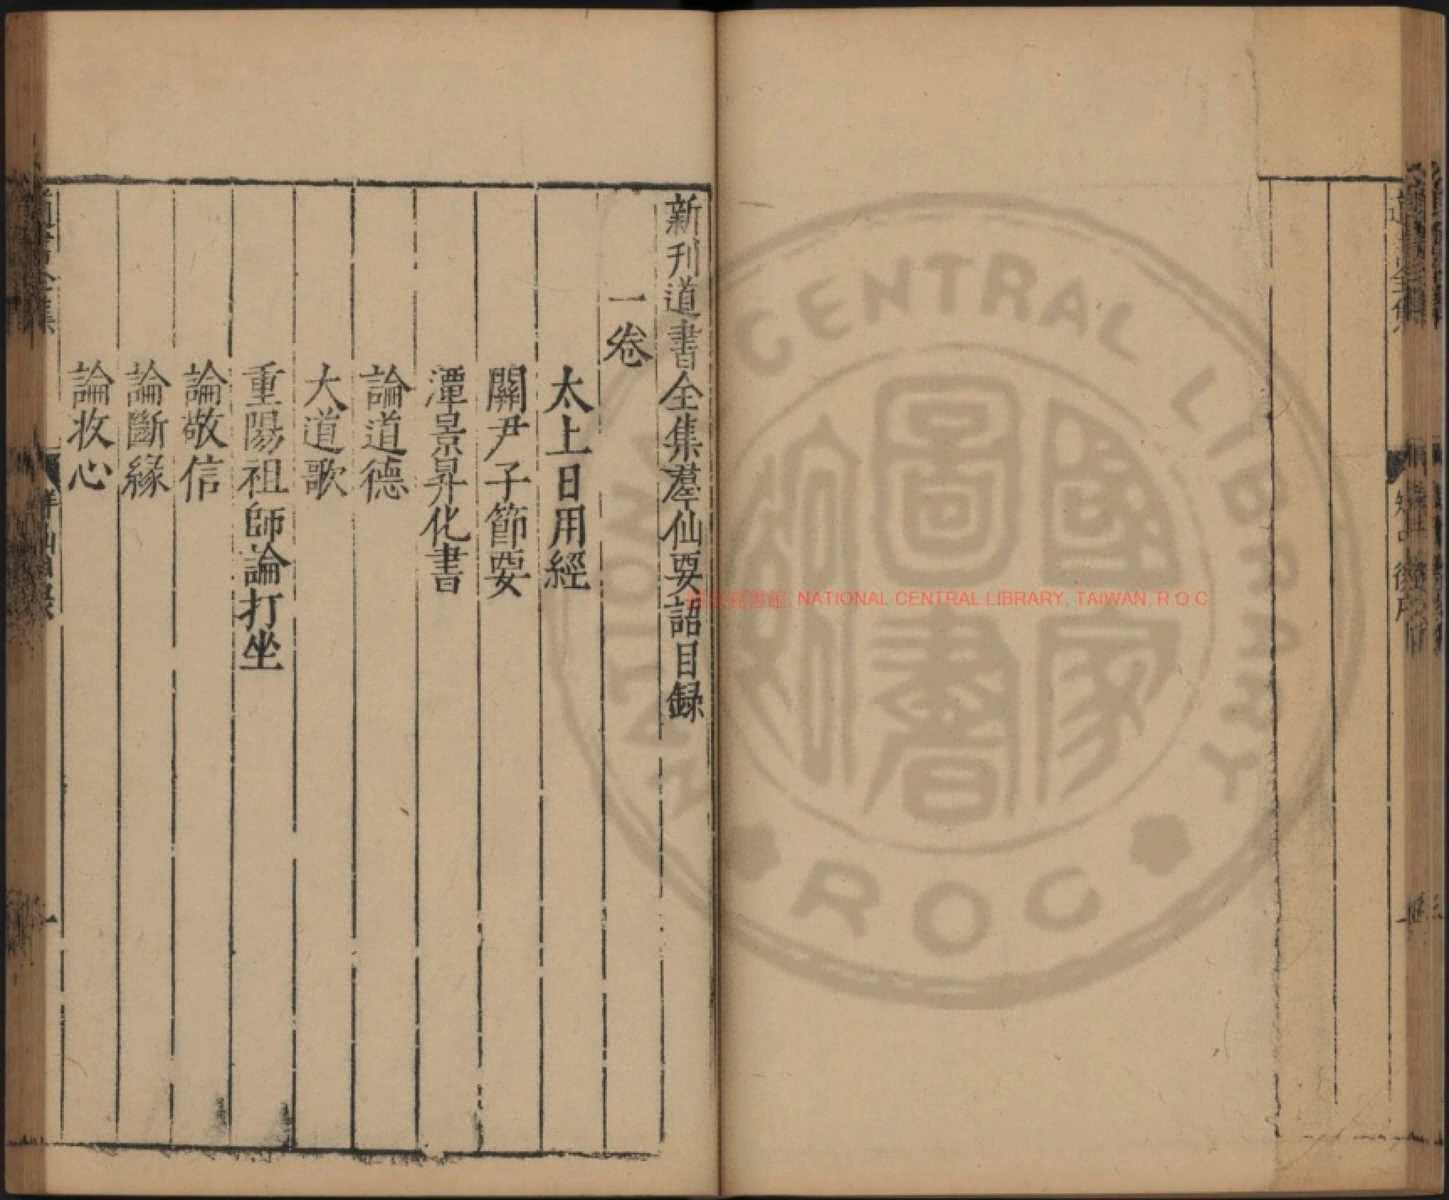 道書全集
新刊道書全集羣仙要語目録
一卷
太上日用經
關尹子節要
潭景昇化書
論道德
大道歌
重陽祖師論打坐
論敬信
論斷緣
論收心
道書全集
羣仙目録
一
NATIONAL CENTRAL LIBRARY, TAIWAN, R O C
國家圖書館
NATIONAL CENTRAL LIBRARY
ROC